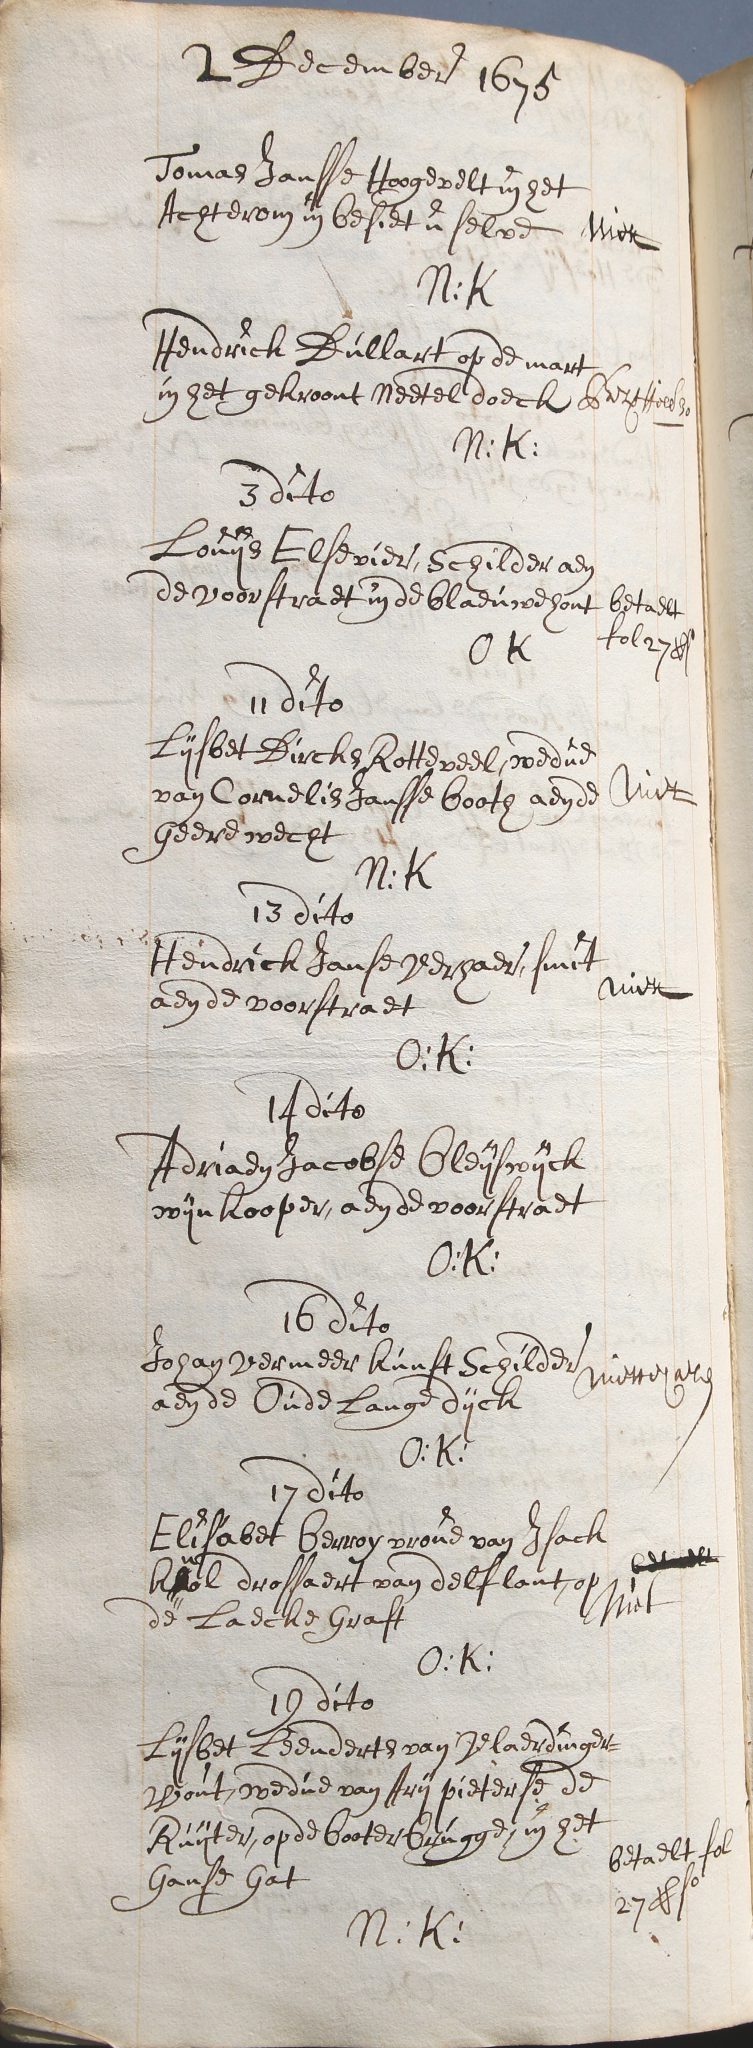 2 December 1675
Tomas Jansse Hoogevelt in het
Achterom in besiet u selve niet
N:K
Hendrick Bullart op de mart
in het gekroont Neetel doeck
N:K:
3 dito
Louijs Elsevier, Schilder aen
de voorstraet in de blaeuwe hont betaelt
fol 27
O K
11 dito
Lijsbet Dircks Rotteveel, wedue
van Cornelis Jansse booth aen de Niet
geere wecht
N:K
13 dito
Hendrick Janse Verhaer, smit
aen de voorstraet niet
O:K:
14 dito
Adriaen Jacobse Bleijswijck
wijnkooper, aen de voorstraet
O:K:
16 dito
Johan vermeer kunst Schilder
aen de Oude Lange dijck
O:K:
17 dito
Elisabet berroy vroue van Isack
drossaert van delflant, op Niet
de Laecke Graft
O:K:
19 dito
Lijsbet Leenderts van Vlaerdinger-
Wout, wedue van Arij pieterse de
Ruijter, op de booter brugge, in het
Ganse Gat betaelt fol
27
N:K: